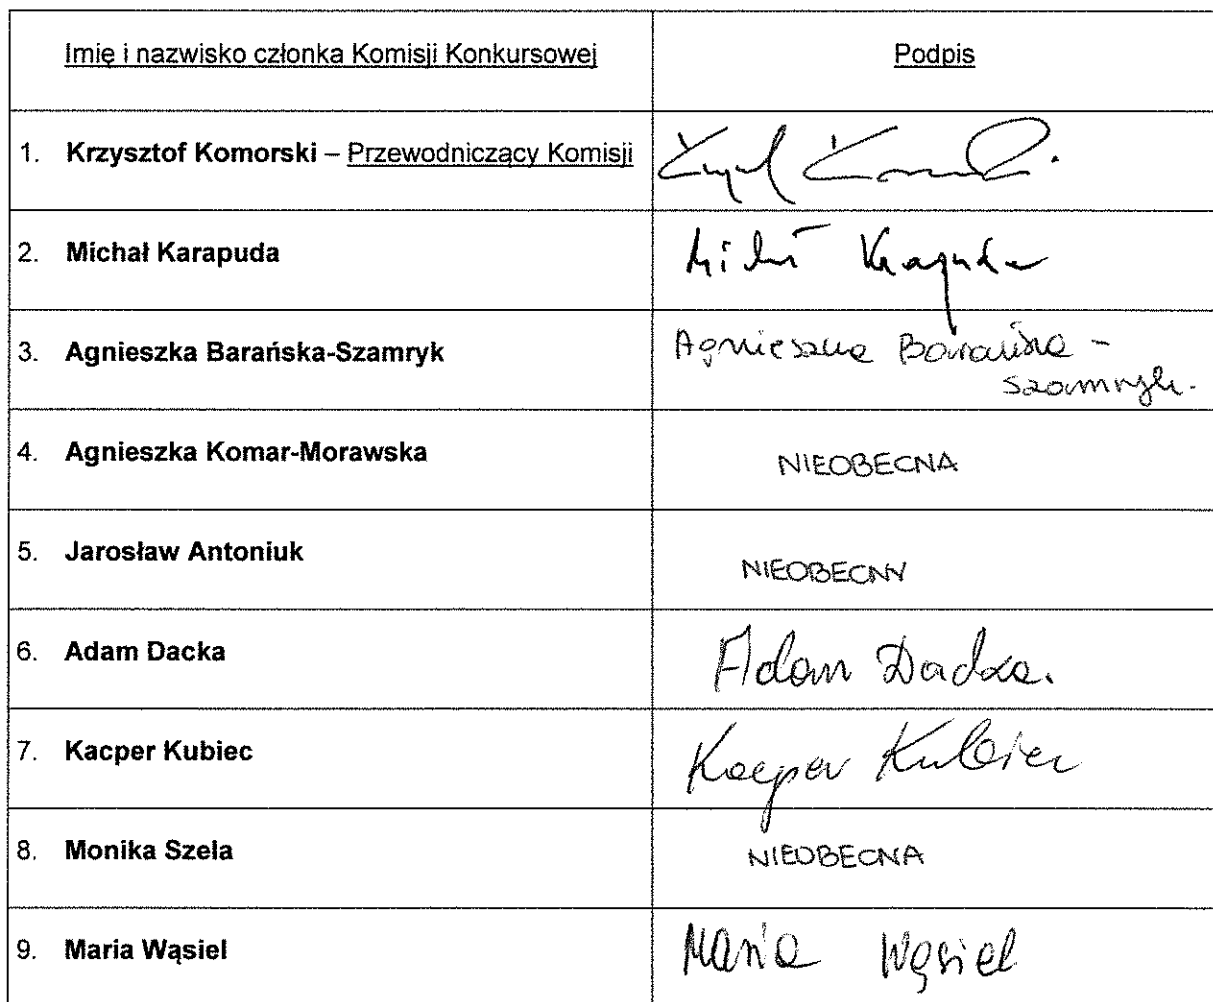 Imię i nazwisko członka Komisji Konkursowej Podpis
1. Krzysztof Komorski – Przewodniczący Komisji
2. Michał Karapuda Michał Karapuda
3. Agnieszka Barańska-Szamryk Agnieszka Barańska -
Szamryk.
4. Agnieszka Komar-Morawska NIEOBECNA
5. Jarosław Antoniuk NIEOBECNY
6. Adam Dacka Adam Dacka.
7. Kacper Kubiec Kacper Kubiec
8. Monika Szela NIEOBECNA
9. Maria Wąsiel Maria Wąsiel